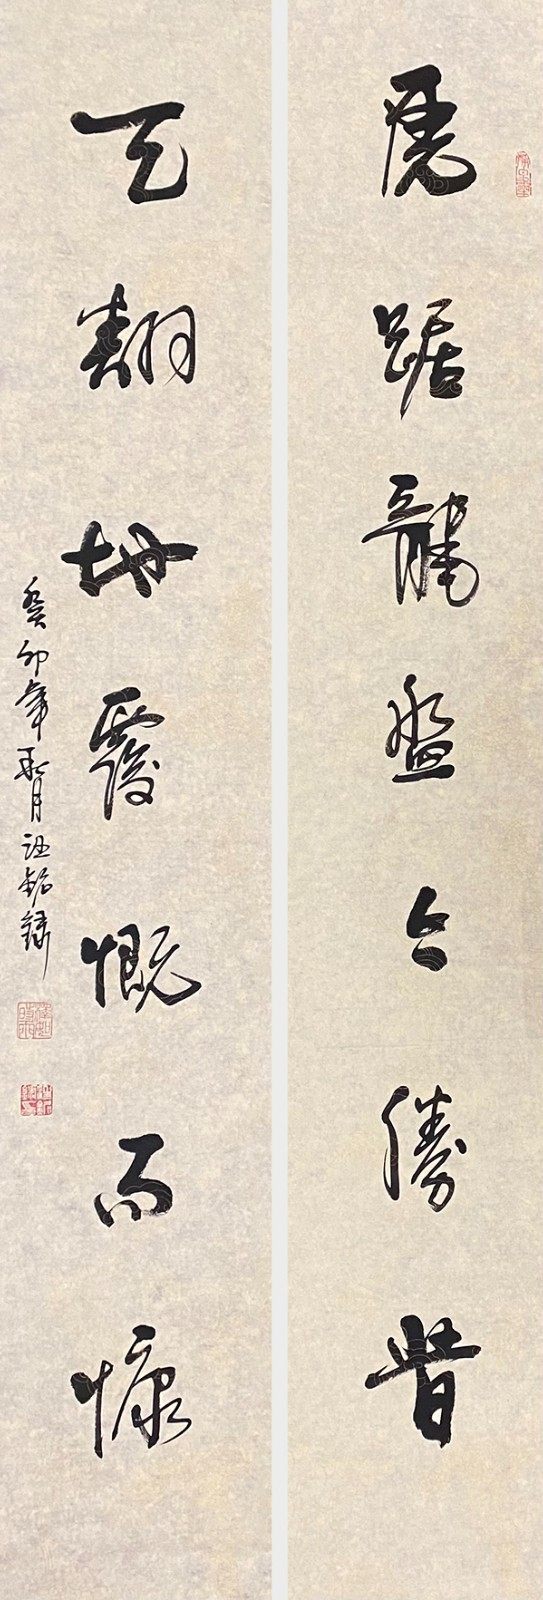 虎踞龍盤今勝昔
天翻地覆慨而慷
癸卯年月銘錄